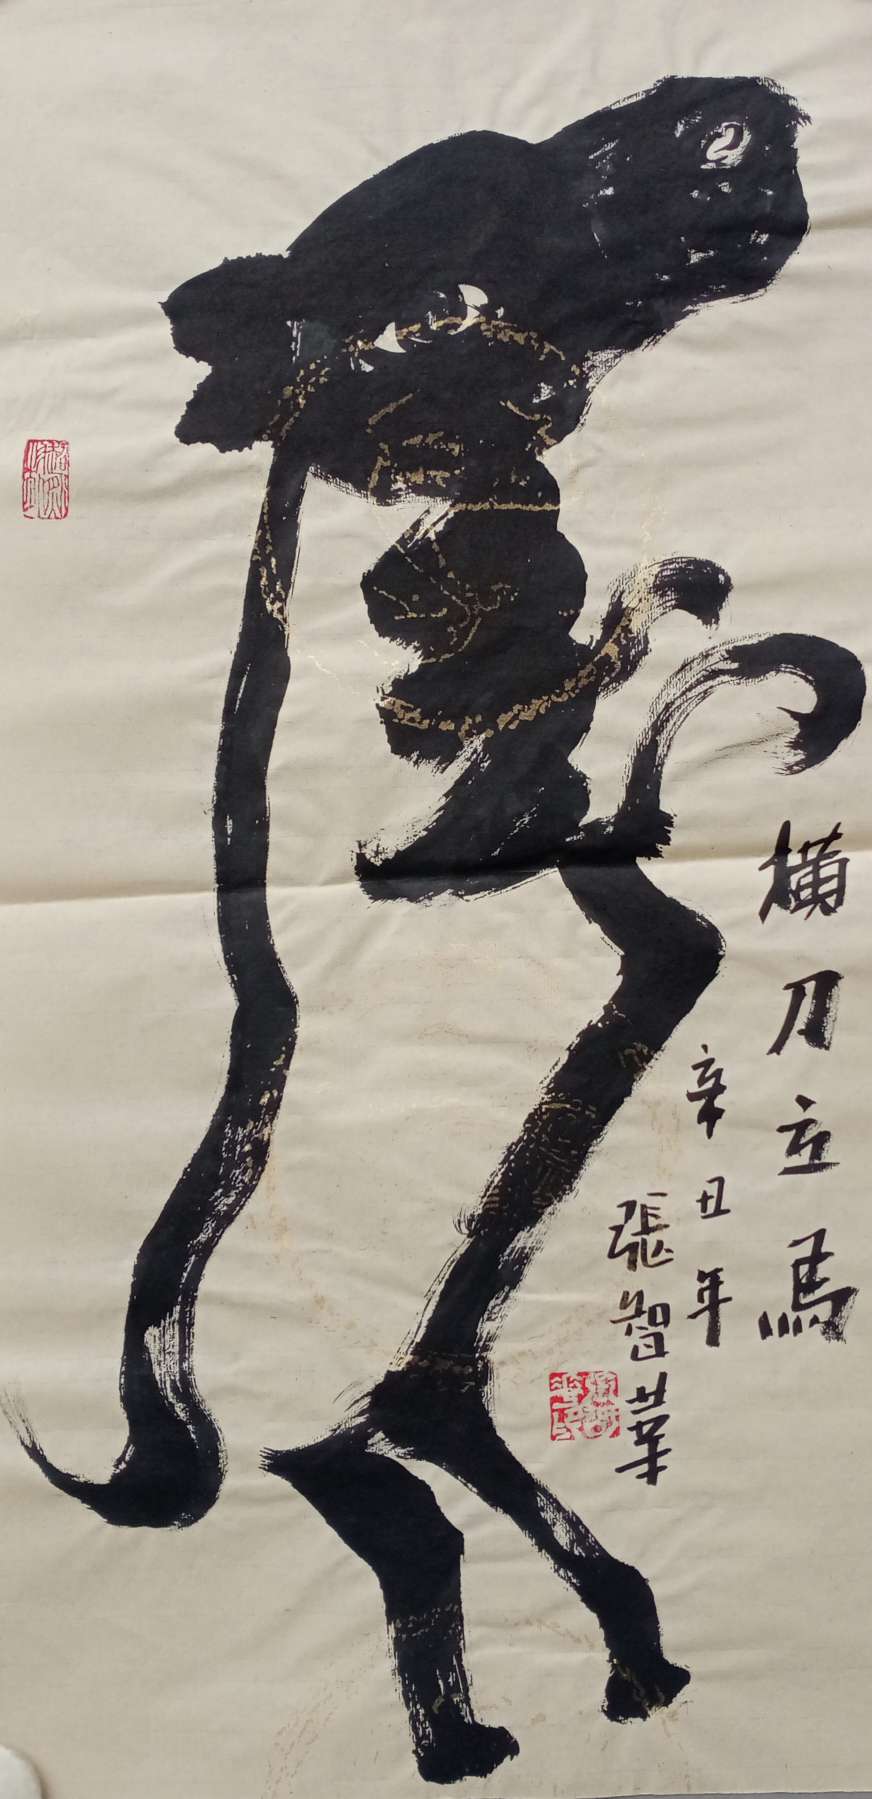 橫刀立馬
辛丑年
張智華